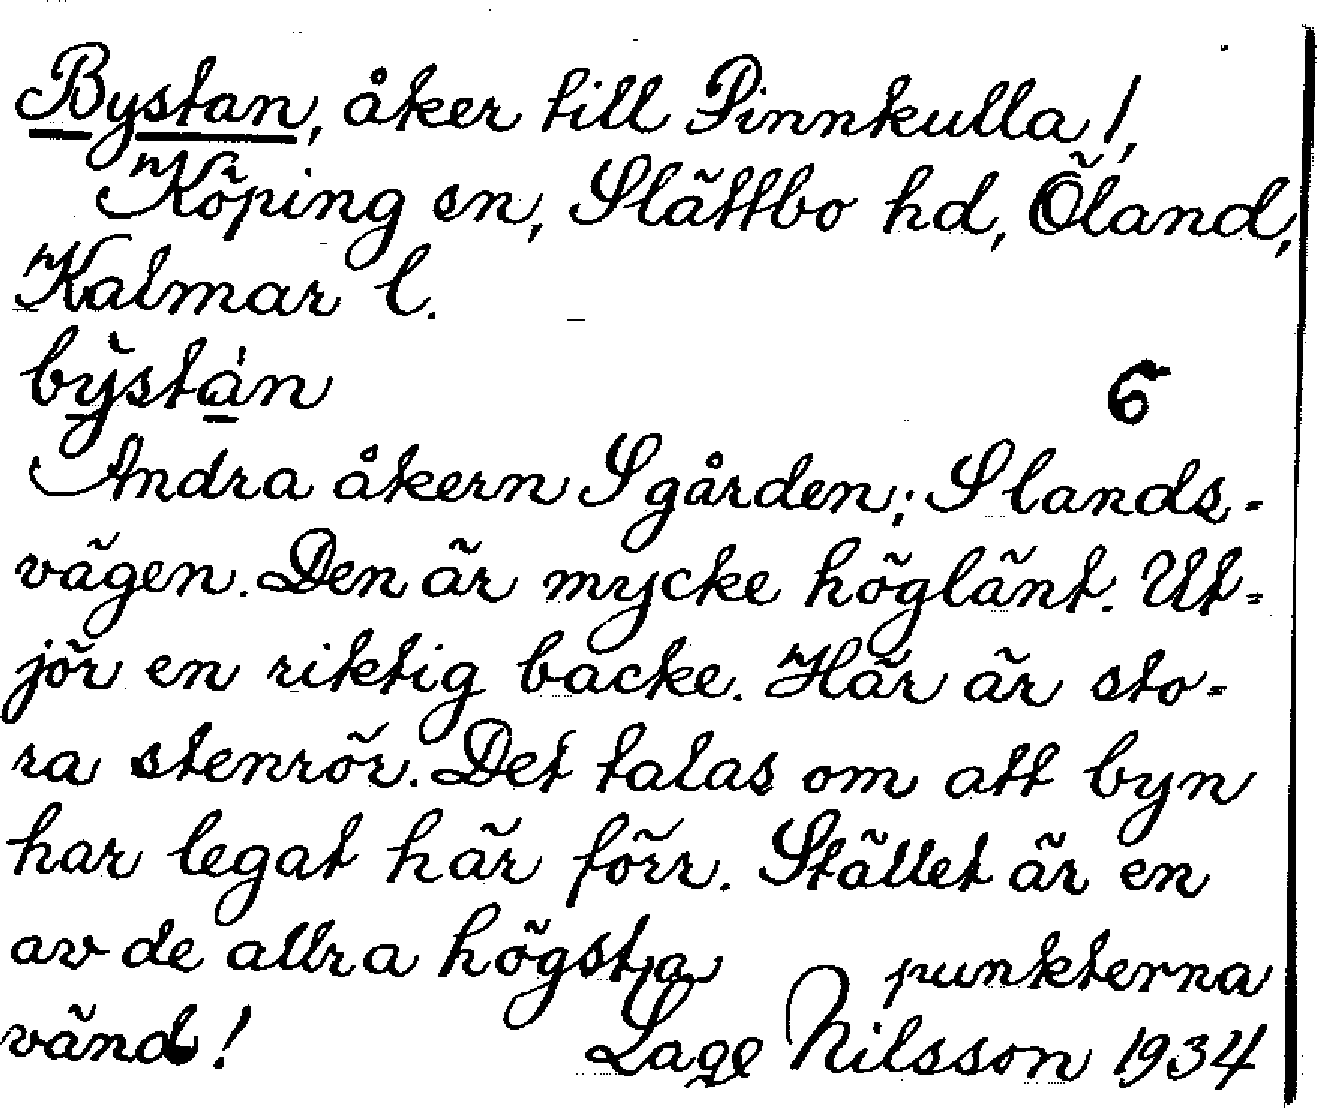 Bystan, åker till Pinnkulla 1,
Köping sn, Slättbo hd, Öland,
Kalmar l.
bỳstán 6
Andra åkern S gården; S lands-
vägen. Den är mycke höglänt. Ut-
jör en riktig backe. Här är sto-
ra stenrör. Det talas om att byn
har legat här förr. Stället är en
av de allra högsta punkterna
vänd! Lage Nilsson 1934